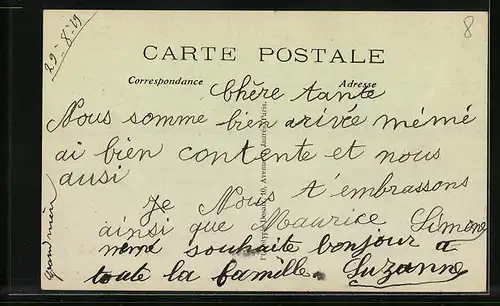 29-8-19
8
CARTE POSTALE
Correspondance
Adresse
Chère tante
Nous somme bien arivée mémé
ai bien contente et nous
ausi
Je Nous t'embrassons
ainsi que Maurice Simone
mémé souhaite bonjour a
toute la famille. Suzanne
grand mère